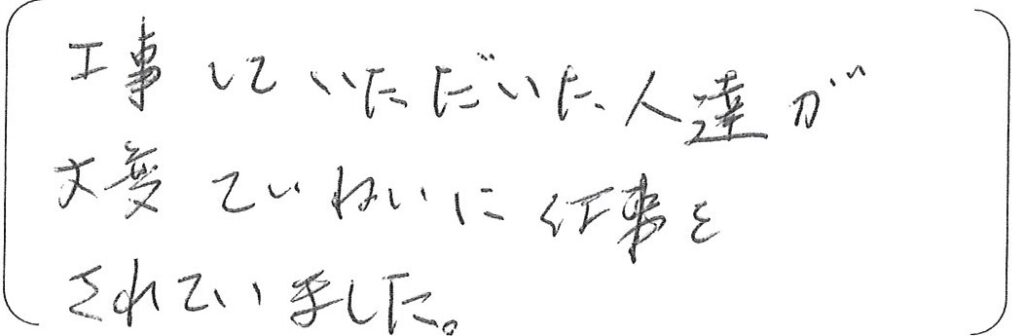 工事していただいた人達が
大変ていねいに仕事を
されていました。